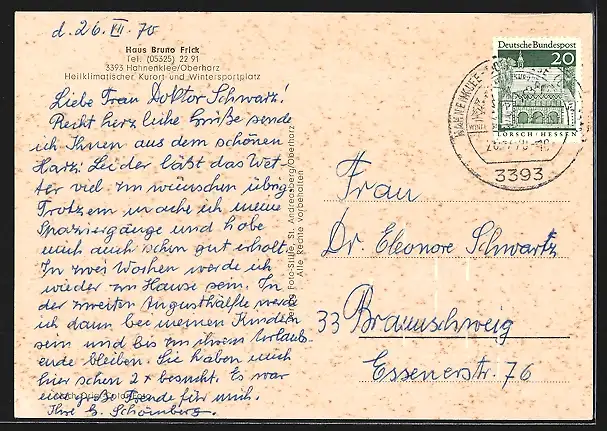 d. 26. VII. 70
Haus Bruno Frick
Tel. (05325) 22 91
3393 Hahnenklee/Oberharz
Heilklimatischer Kurort und Wintersportplatz
Liebe Frau Doktor Schwartz!
Recht herzliche Grüße sende
ich Ihnen aus dem schönen
Harz. Leider läßt das Wet-
ter viel zu wünschen übrig.
Trotzdem mache ich meine
Spaziergänge und habe
mich auch schon gut erholt.
In zwei Wochen werde ich
wieder zu Hause sein. In
der zweiten Augusthälfte werde
ich dann bei meinen Kindern
sein und bis zu ihrem Urlaubs-
ende bleiben. Sie haben mich
hier schon 2x besucht. Es war
eine große Freude für mich.
Ihre G. Schömberg.
Foto-Stute, St. Andreasberg/Oberharz
Alle Rechte vorbehalten
Deutsche Bundespost
20
LORSCH/HESSEN
3393
Frau
Dr. Eleonore Schwartz
33 Braunschweig
Essenerstr. 76